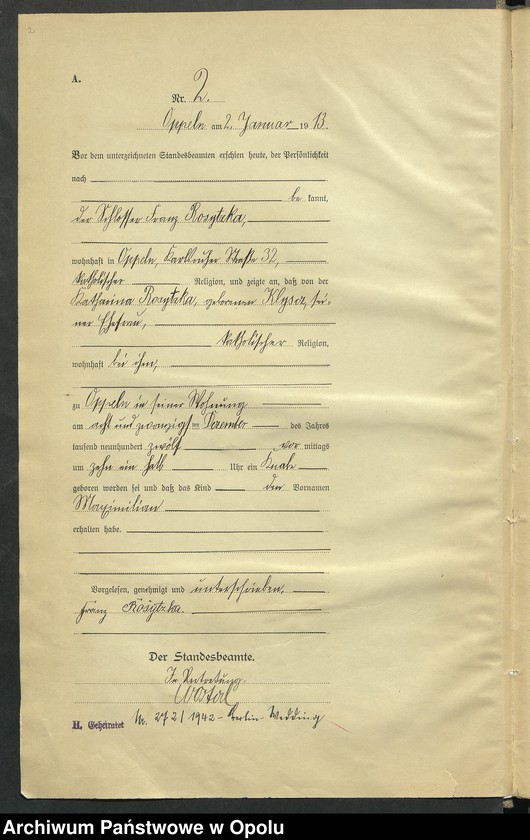 2
A.
Nr. 2.
Oppeln am 2. Januar 1913.
Vor dem unterzeichneten Standesbeamten erschien heute, der Persönlichkeit
nach
be kannt,
der Schlosser Franz Rosytzka,
wohnhaft in Oppeln, Karlsruher Straße 32,
katholischer Religion, und zeigte an, daß von der
Katharina Rosytzka, geborenen Klysez, sei-
ner Ehefrau,
katholischer Religion,
wohnhaft bei ihm,
zu Oppeln in seiner Wohnung
am acht und zwanzigsten Dezember des Jahres
tausend neunhundert zwölf vor mittags
um zehn ein halb Uhr ein Knabe
geboren worden sei und daß das Kind den Vornamen
Maximilian
erhalten habe.
Vorgelesen, genehmigt und unterschrieben.
Franz Rosytzka.
Der Standesbeamte.
In Vertretung.
H. Geheiratet Nr. 272/1942 - Berlin-Wedding
Archiwum Państwowe w Opolu